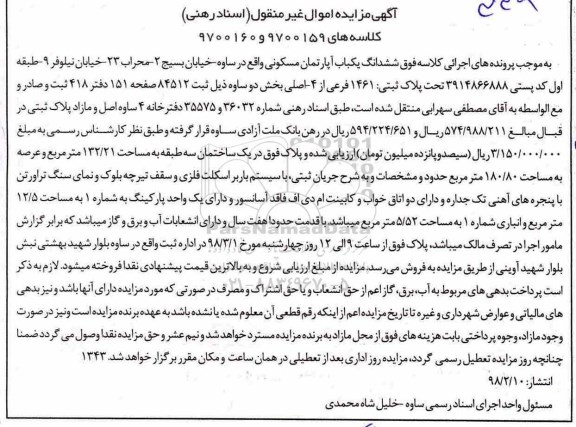 آگهی مزایده اموال غیر منقول (اسناد رهنی)
کلاسه های ۹۷۰۰۱۵۹ و ۹۷۰۰۱۶۰
به موجب پرونده های اجرائی کلاسه فوق ششدانگ یکباب آپارتمان مسکونی واقع در ساوه-خیابان بسیج ۲-محراب ۲۳-خیابان نیلوفر ۹-طبقه
اول کد پستی ۳۹۱۴۸۶۶۸۸۸ تحت پلاک ثبتی: ۱۴۶۱ فرعی از ۴-اصلی بخش دو ساوه ذیل ثبت ۸۴۵۱۲ صفحه ۱۵۱ دفتر ۴۱۸ ثبت و صادر و
مع الواسطه به آقای مصطفی سهرابی منتقل شده است، طبق اسناد رهنی شماره ۳۶۰۳۲ و ۳۵۵۷۵ دفترخانه ۴ ساوه اصل و مازاد پلاک ثبتی در
قبال مبالغ ۵۷۴/۹۸۸/۲۱۱ ریال و ۵۹۴/۲۲۴/۶۵۱ ریال در رهن بانک ملت آزادی ساوه قرار گرفته و طبق نظر کارشناس رسمی به مبلغ
۳/۱۵۰/۰۰۰/۰۰۰ ریال (سیصد و پانزده میلیون تومان) ارزیابی شده و پلاک فوق در یک ساختمان سه طبقه به مساحت ۱۳۲/۲۱ متر مربع و عرصه
به مساحت ۱۸۰/۸۰ متر مربع حدود و مشخصات و به شرح جریان ثبتی، با سیستم باربر اسکلت فلزی و سقف تیرچه بلوک و نمای سنگ تراورتن
با پنجره های آهنی تک جداره و دارای دو اتاق خواب و کابینت ام دی اف فاقد آسانسور و دارای یک واحد پارکینگ به شماره ۱ به مساحت ۱۲/۵
متر مربع و انباری شماره ۱ به مساحت ۵/۵۲ متر مربع میباشد. با قدمت حدودا هفت سال و دارای انشعابات آب و برق و گاز میباشد که برابر گزارش
مامور اجرا در تصرف مالک میباشد، پلاک فوق از ساعت ۹ الی ۱۲ روز چهارشنبه مورخ ۹۸/۳/۱ در اداره ثبت واقع در ساوه بلوار شهید بهشتی نبش
بلوار شهید آوینی از طریق مزایده به فروش می رسد. مزایده از مبلغ ارزیابی شروع و به بالاترین قیمت پیشنهادی نقدا فروخته میشود. لازم به ذکر
است پرداخت بدهی های مربوط به آب، برق، گاز اعم از حق انشعاب و یا حق اشتراک و مصرف در صورتی که مورد مزایده دارای آنها باشد و نیز بدهی
های مالیاتی و عوارض شهرداری و غیره تا تاریخ مزایده اعم از اینکه رقم قطعی آن معلوم شده یا نشده باشد به عهده برنده مزایده است و نیز در صورت
وجود مازاد، وجوه پرداختی بابت هزینه های فوق از محل مازاد به برنده مزایده مسترد خواهد شد و نیم عشر و حق مزایده نقدا وصول می گردد ضمنا
چنانچه روز مزایده تعطیل رسمی گردد، مزایده روز اداری بعد از تعطیلی در همان ساعت و مکان مقرر برگزار خواهد شد. ۱۳۴۳
انتشار: ۹۸/۲/۱۰
مسئول واحد اجرای اسناد رسمی ساوه -خلیل شاه محمدی
ParsNamadData